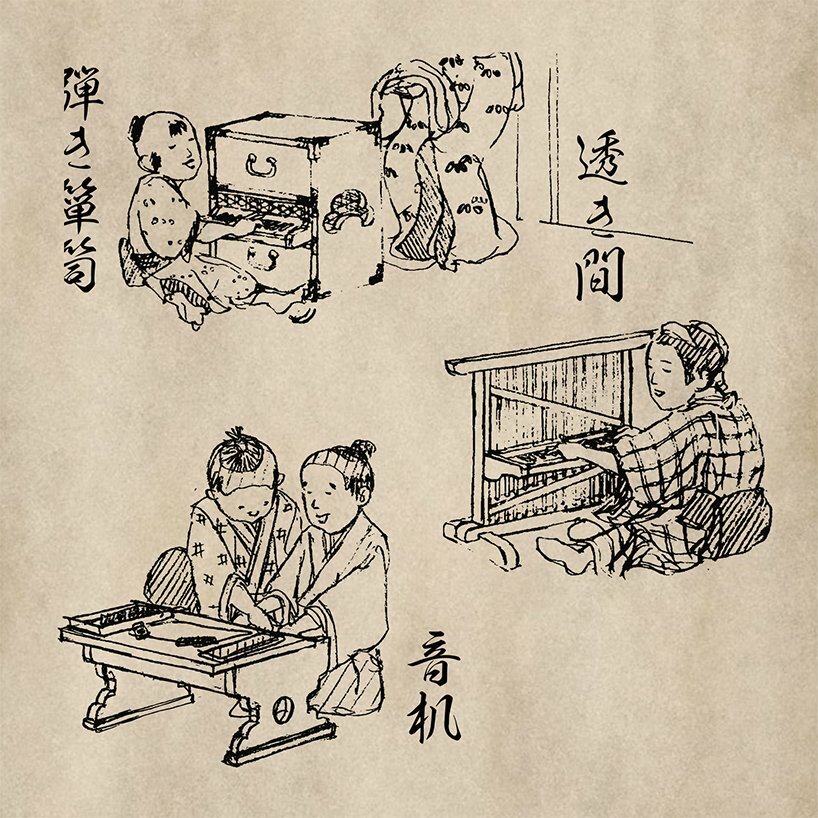 透き間
弾き箪笥
音机